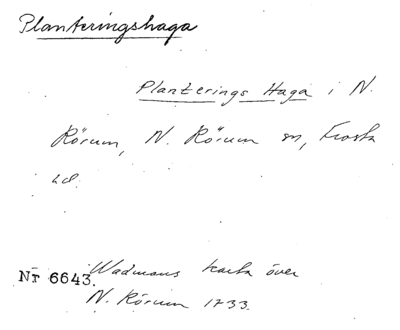 Planteringshaga
Planterings Haga i N.
Rörum, N. Rörum sn, Frosta
hd.
Wadmans karta över
Nr 6643.
N. Rörum 1733.